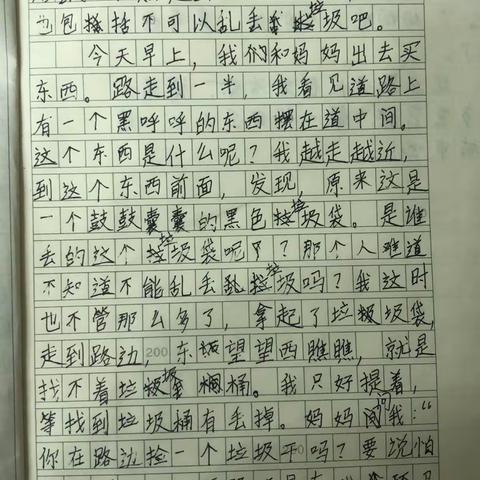 也包括不可以乱丢垃圾吧。
今天早上，我们和妈妈出去买
东西。路走到一半，我看见道路上
有一个黑呼呼的东西摆在道中间。
这个东西是什么呢？我越走越近，
到这个东西前面，发现，原来这是
一个鼓鼓囊囊的黑色垃圾袋。是谁
丢的这个垃圾袋呢？那个人难道
不知道不能乱丢乱垃圾吗？我这时
也不管那么多了，拿起了垃圾袋，
走到路边，200东望望西瞧瞧，就是
找不着垃圾桶。我只好提着，
等找到垃圾桶有丢掉。妈妈问我：“
你在路边捡一个垃圾干吗？要说怕